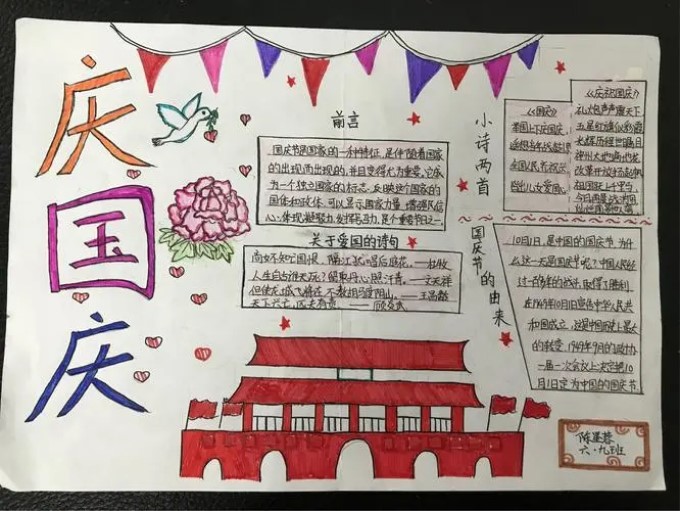 庆
国
庆
前言
国庆节是国家的一种特征,是伴随着国家
的出现而出现的,并且变得尤为重要。它成
为一个独立国家的标志,反映这个国家的
国体和政体,可以显示国家力量,增强民信
心,体现凝聚力,发挥号召力,是个重要节日之一。
关于爱国的诗句
商女不知亡国恨,隔江犹唱后庭花。——杜牧
人生自古谁无死?留取丹心照汗青。——文天祥
但使龙城飞将在,不教胡马度阴山。——王昌龄
天下兴亡,匹夫有责。——顾炎武
小诗两首
《国庆》
举国上下庆国庆,
《庆祝国庆》
礼炮声声震天下
五星红旗
改革开放
国庆节的由来
10月1日,是中国的国庆节,为什
么这一天是国庆节呢?中国人民经
过一百多年的战斗,取得了胜利,
在1949年10月1日宣告中华人民共
和国成立,这是中国历史上最大
的转变。1949年9月的政协
一届一次会议上决定把10
月1日定为中国的国庆节
六·九班